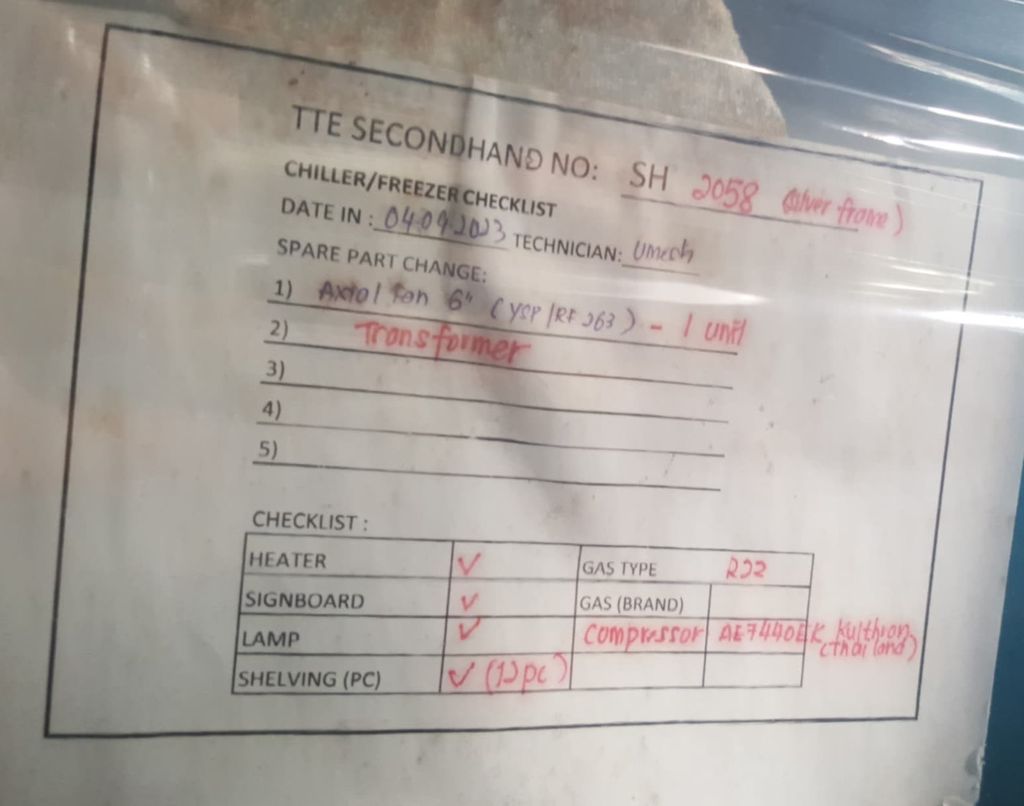 TTE SECONDHAND NO: SH 2058 (silver frame)
CHILLER/FREEZER CHECKLIST
DATE IN : 04.09.2023 TECHNICIAN: Umesh
SPARE PART CHANGE:
1) Axial fan 6" (YSP/RF 263) - 1 unit
2) Transformer
3)
4)
5)
CHECKLIST :
HEATER ✓ GAS TYPE R22
SIGNBOARD ✓ GAS (BRAND)
LAMP ✓ Compressor AE7440EK Kulthron (thailand)
SHELVING (PC) ✓ (12pc)